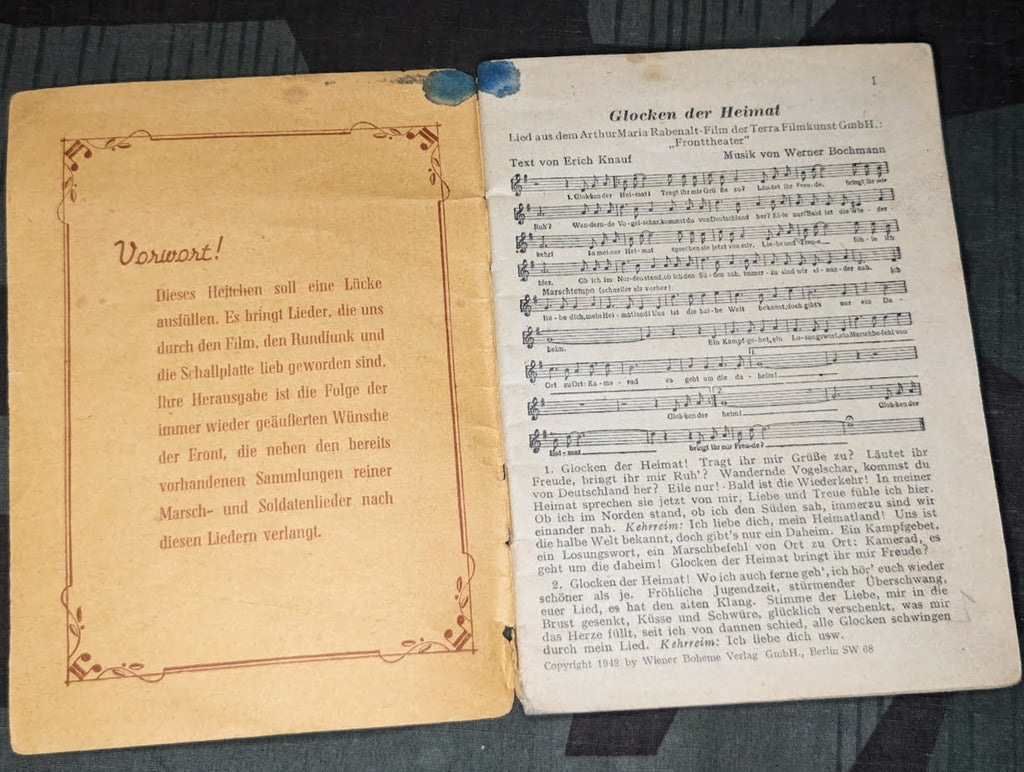 Vorwort!
Dieses Heftchen soll eine Lücke
ausfüllen. Es bringt Lieder, die uns
durch den Film, den Rundfunk und
die Schallplatte lieb geworden sind.
Ihre Herausgabe ist die Folge der
immer wieder geäußerten Wünsche
der Front, die neben den bereits
vorhandenen Sammlungen reiner
Marsch- und Soldatenlieder nach
diesen Liedern verlangt.
1
Glocken der Heimat
Lied aus dem Arthur Maria Rabenalt-Film der Terra Filmkunst GmbH.:
„Fronttheater"
Text von Erich Knauf Musik von Werner Bochmann
1. Glocken der Hei-mat! Tragt ihr mir Grü-ße zu? Läu-tet ihr Freu-de, bringt ihr mir
Ruh'? Wan-dern-de Vo-gel-schar, kommst du von Deutschland her? Ei-le nur! Bald ist die Wie-der-
kehr! In mei-ner Hei-mat sprechen sie jetzt von mir, Lie-be und Treu-e füh-le ich
hier. Ob ich im Nor-den stand, ob ich den Sü-den sah, immer-zu sind wir ei-nan-der nah. Ich
Marschtempo (schneller als vorher)
lie-be dich, mein Hei-matland! Uns ist die hal-be Welt bekannt, doch gibt's nur ein Da-
heim. Ein Kampf-ge-bet, ein Lo-sungswort, ein Marschbe-fehl von
Ort zu Ort: Ka-me-rad es geht um die da-heim!
1
2
Glok-ken der heim! Glok-ken der
Hei-mat bringt ihr mir Freu-de?
1. Glocken der Heimat! Tragt ihr mir Grüße zu? Läutet ihr
Freude, bringt ihr mir Ruh'? Wandernde Vogelschar, kommst du
von Deutschland her? Eile nur! Bald ist die Wiederkehr! In meiner
Heimat sprechen sie jetzt von mir, Liebe und Treue fühle ich hier.
Ob ich im Norden stand, ob ich den Süden sah, immerzu sind wir
einander nah. Kehrreim: Ich liebe dich, mein Heimatland! Uns ist
die halbe Welt bekannt, doch gibt's nur ein Daheim. Ein Kampfgebet,
ein Losungswort, ein Marschbefehl von Ort zu Ort: Kamerad, es
geht um die daheim! Glocken der Heimat bringt ihr mir Freude?
2. Glocken der Heimat! Wo ich auch ferne geh', ich hör' euch wieder
schöner als je. Fröhliche Jugendzeit, stürmender Überschwang,
euer Lied, es hat den alten Klang. Stimme der Liebe, mir in die
Brust gesenkt, Küsse und Schwüre, glücklich verschenkt, was mir
das Herze füllt, seit ich von dannen schied, alle Glocken schwingen
durch mein Lied. Kehrreim: Ich liebe dich usw.
Copyright 1942 by Wiener Boheme Verlag GmbH., Berlin SW 68